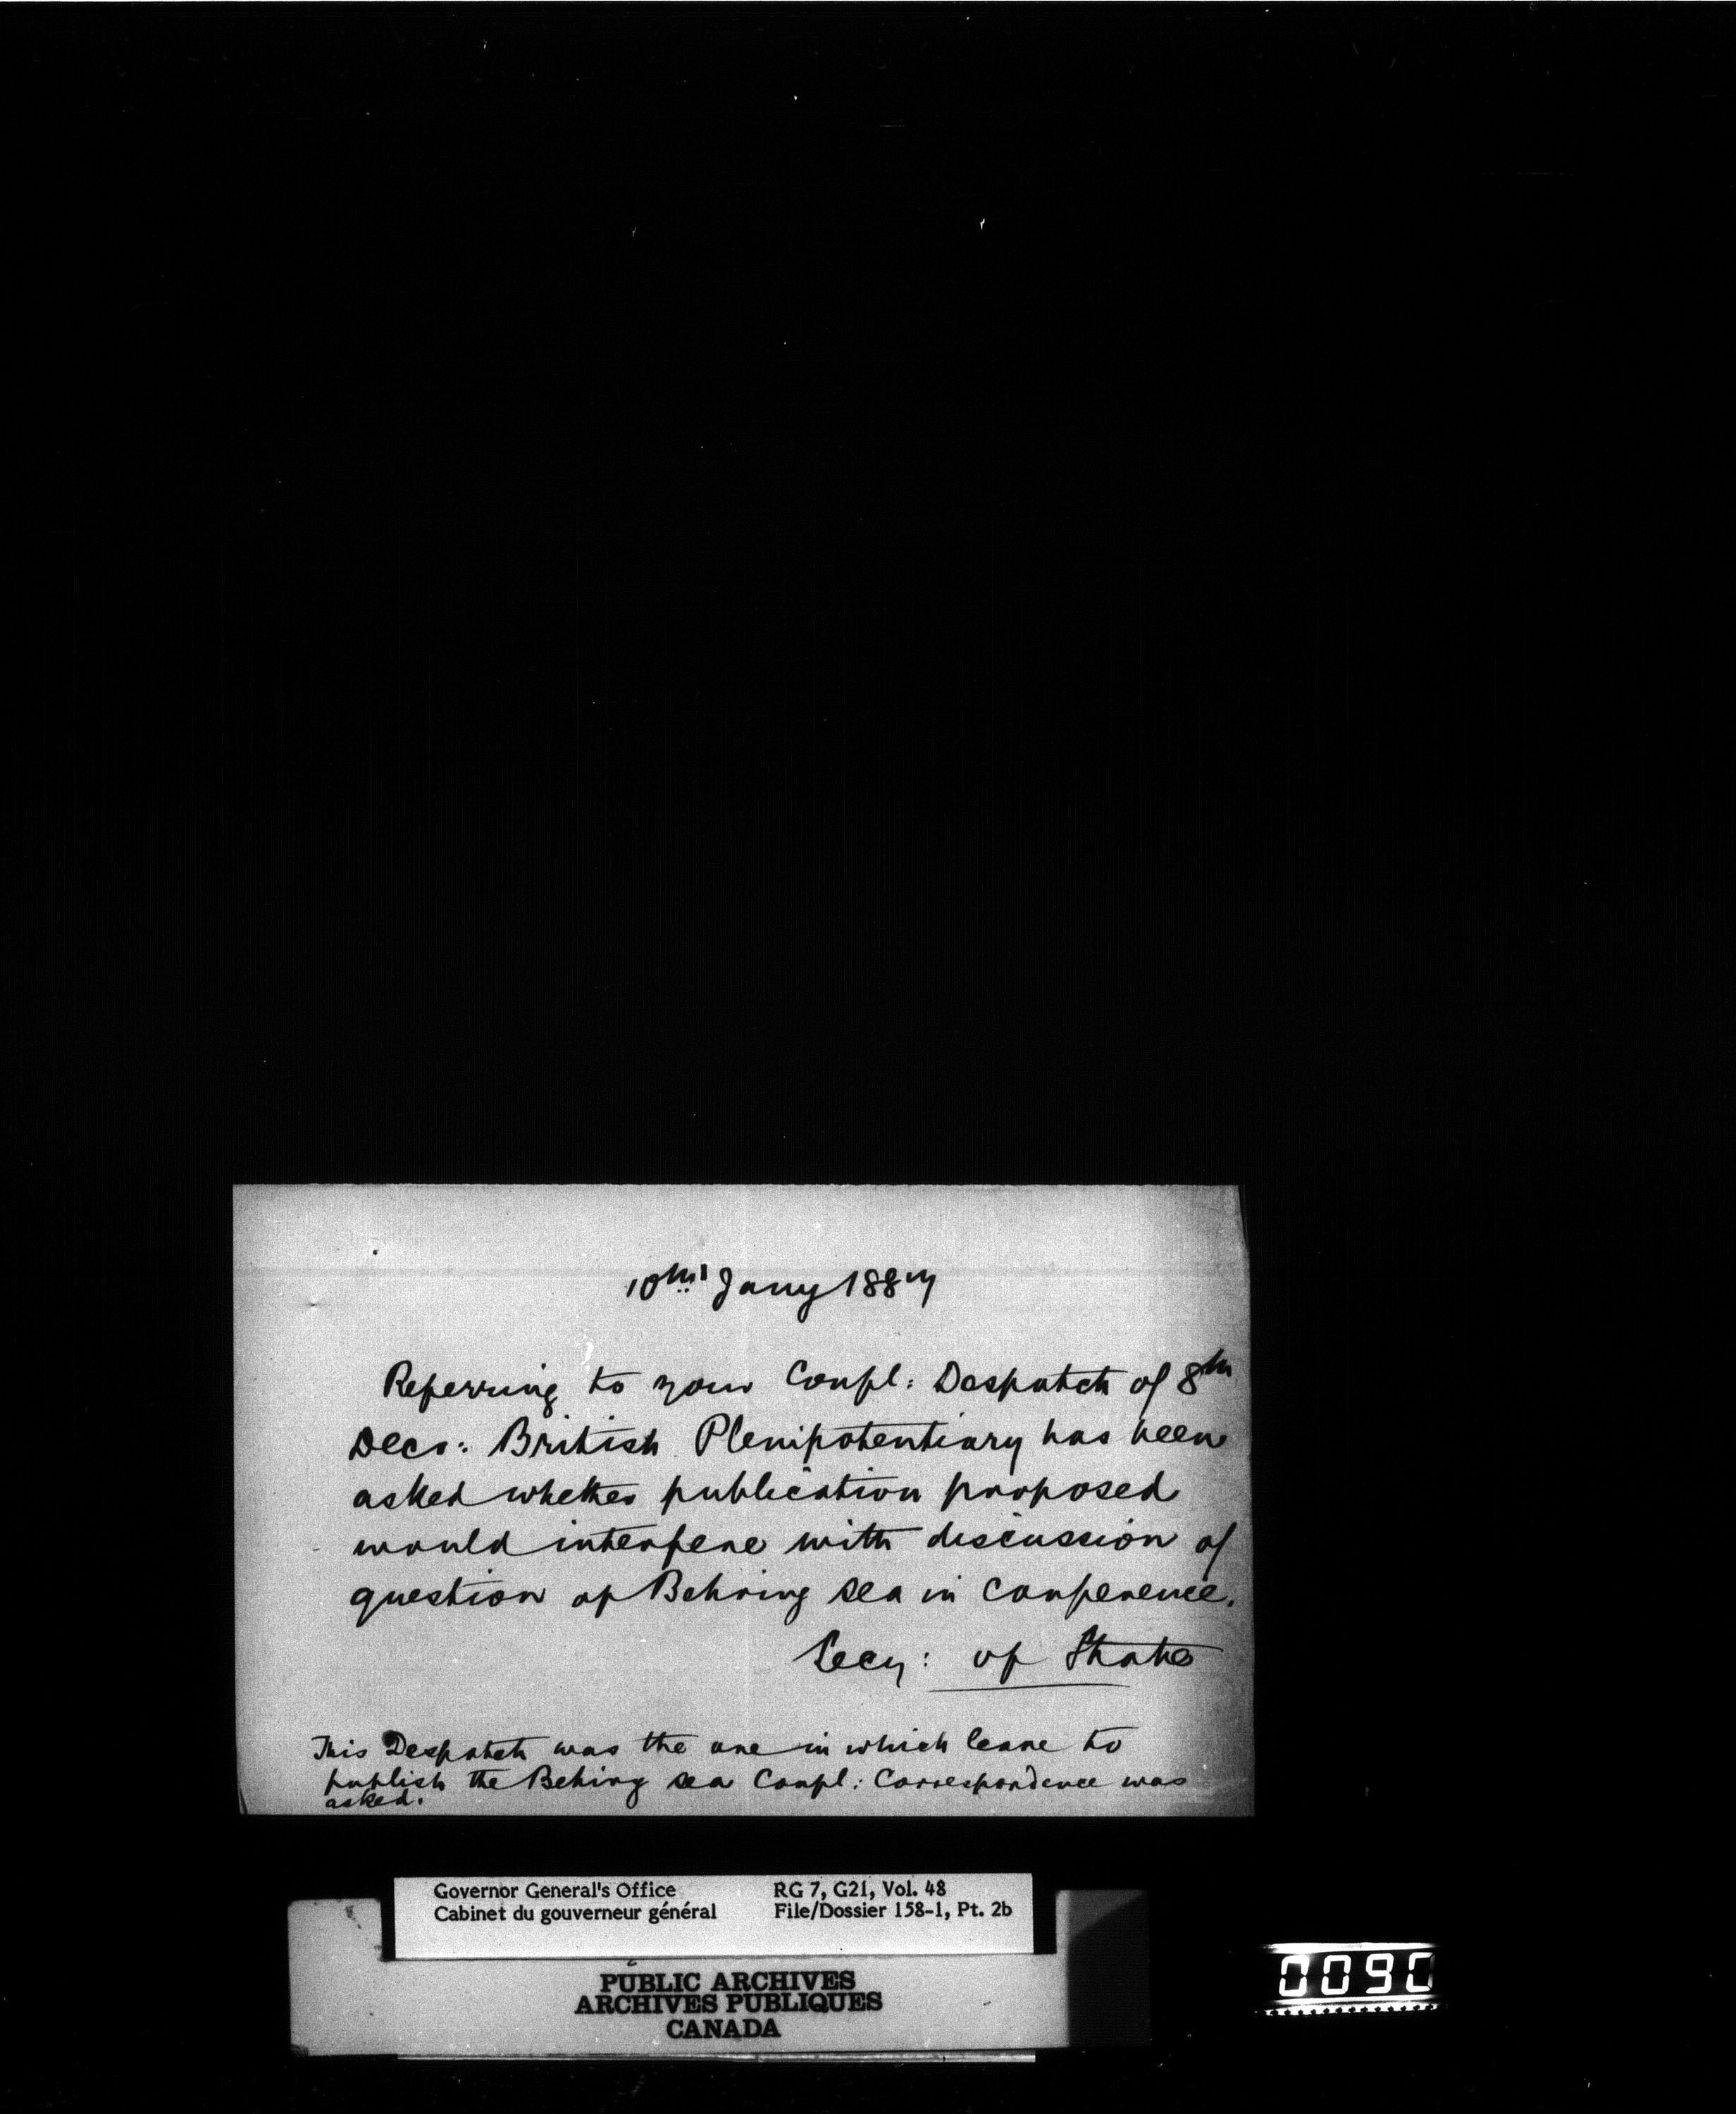 10th Jany 1887
Referring to your Confl: Despatch of 8th
Decr: British Plenipotentiary has been
asked whether publication proposed
would interfere with discussion of
question of Behring Sea in Conference.
Secy: of State
This Despatch was the one in which leave to
publish the Behring Sea Confl: Correspondence was
asked.
Governor General's Office
Cabinet du gouverneur général
RG 7, G21, Vol. 48
File/Dossier 158-1, Pt. 2b
PUBLIC ARCHIVES
ARCHIVES PUBLIQUES
CANADA
0090